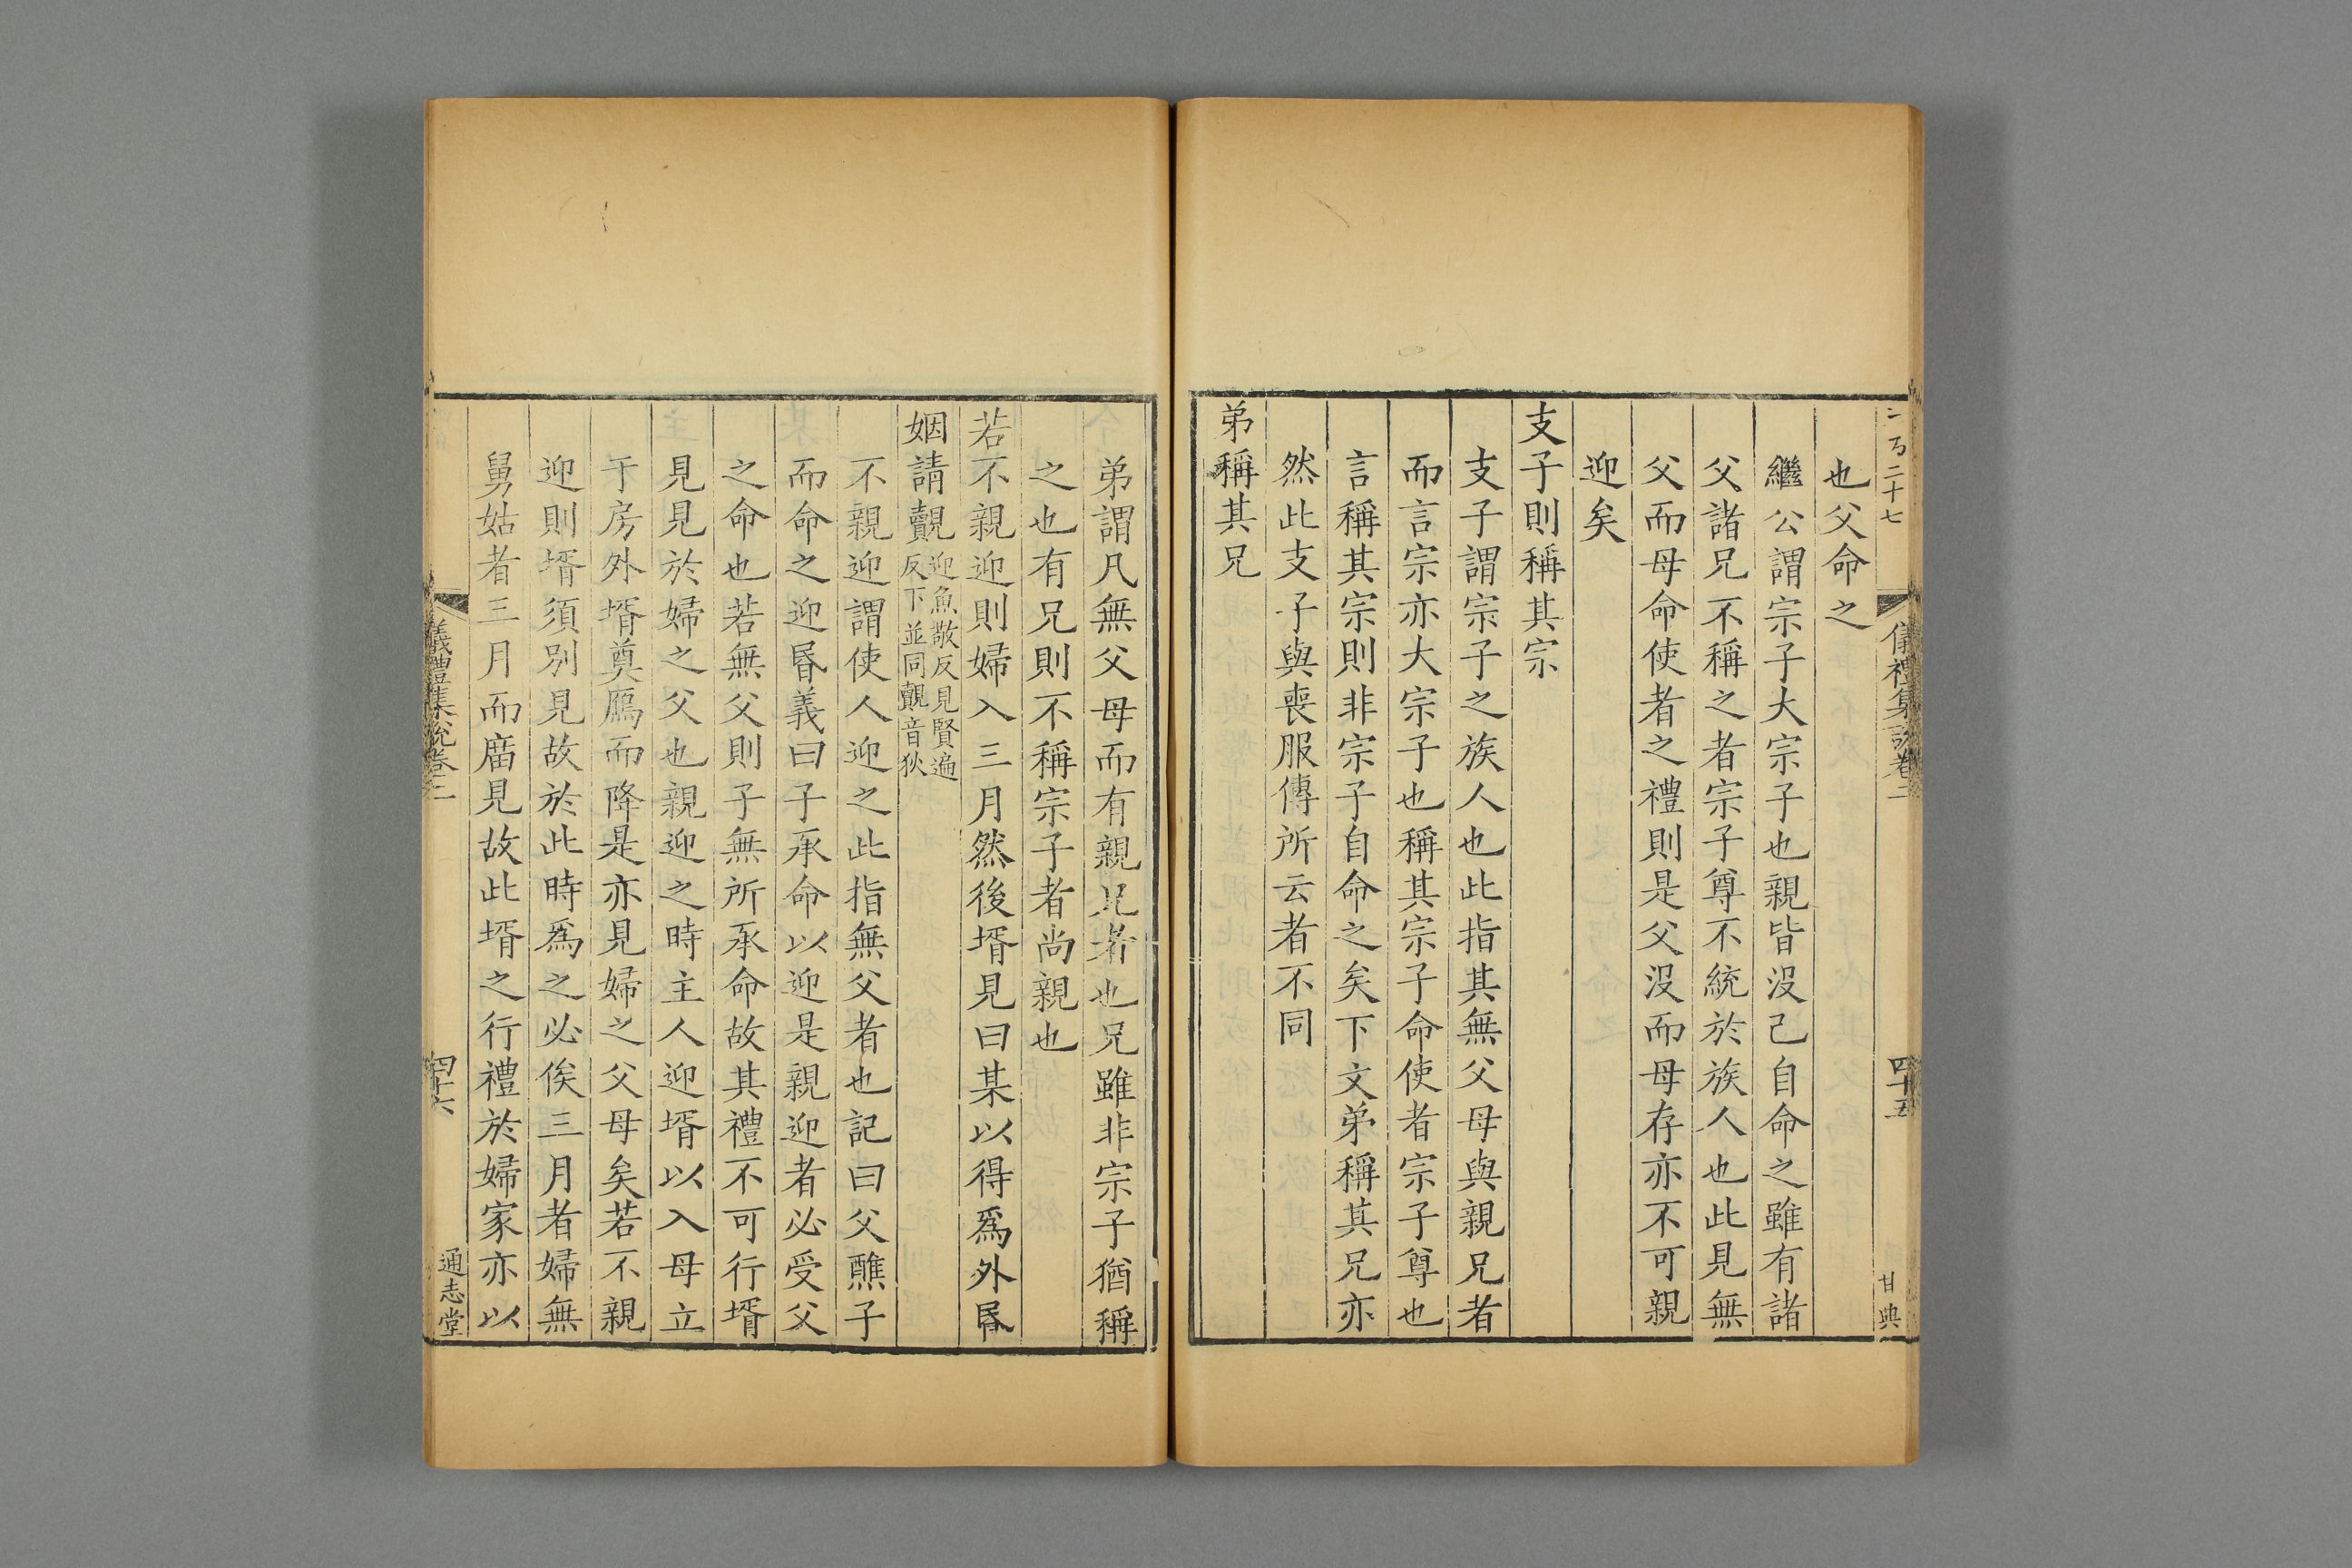 二百二十七 儀禮集說卷二 四十五 甘典
也父命之
繼公謂宗子大宗子也親皆沒己自命之雖有諸
父諸兄不稱之者宗子尊不統於族人也此見無
父而母命使者之禮則是父沒而母存亦不可親
迎矣
支子則稱其宗
支子謂宗子之族人也此指其無父母與親兄者
而言宗亦大宗子也稱其宗子命使者宗子尊也
言稱其宗則非宗子自命之矣下文弟稱其兄亦
然此支子與喪服傳所云者不同
弟稱其兄
弟謂凡無父母而有親兄者也兄雖非宗子猶稱
之也有兄則不稱宗子者尚親也
若不親迎則婦入三月然後壻見曰某以得爲外昬
姻請覿迎魚敬反見賢遍
反下並同覿音狄
不親迎謂使人迎之此指無父者也記曰父醮子
而命之迎昬義曰子承命以迎是親迎者必受父
之命也若無父則子無所承命故其禮不可行壻
見見於婦之父也親迎之時主人迎壻以入母立
于房外壻奠鴈而降是亦見婦之父母矣若不親
迎則壻須別見故於此時爲之必俟三月者婦無
舅姑者三月而廟見故此壻之行禮於婦家亦以
儀禮集說卷二 四十六 通志堂